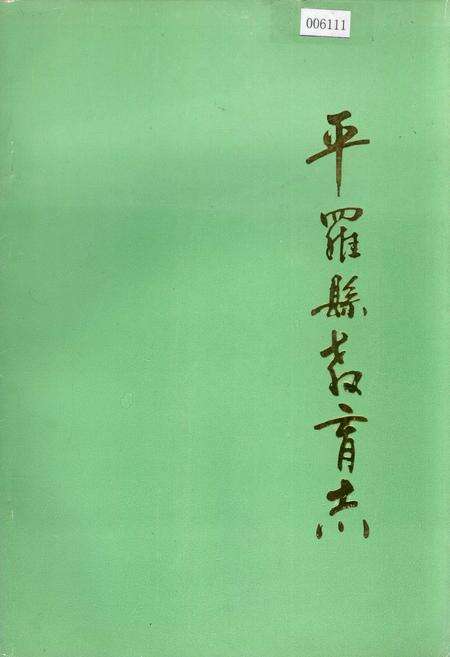 006111
平羅縣教育志